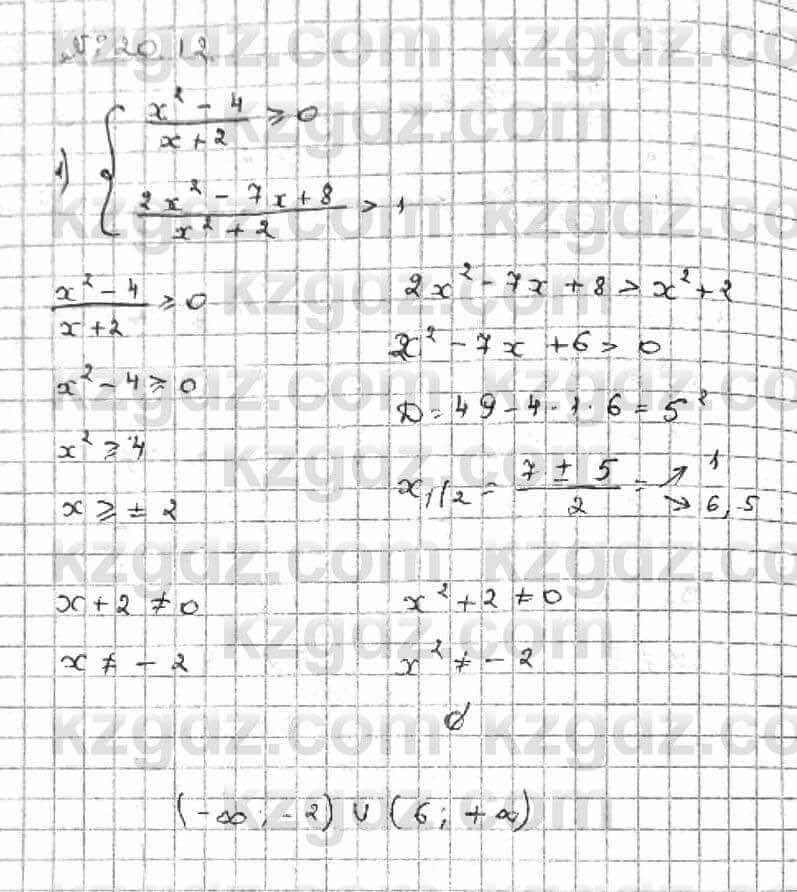 № 20.12.
1) { (x² - 4)/(x + 2) ≥ 0
(2x² - 7x + 8)/(x² + 2) > 1
(x² - 4)/(x + 2) ≥ 0
x² - 4 ≥ 0
x² ≥ 4
x ≥ ± 2
x + 2 ≠ 0
x ≠ - 2
2x² - 7x + 8 > x² + 2
x² - 7x + 6 > 0
D = 49 - 4 · 1 · 6 = 5²
x₁/₂ = (7 ± 5)/2 = ↗ 1
↘ 6,5
x² + 2 ≠ 0
x² ≠ - 2
∅
(-∞; -2) ∪ (6; +∞)
kzgdz.com